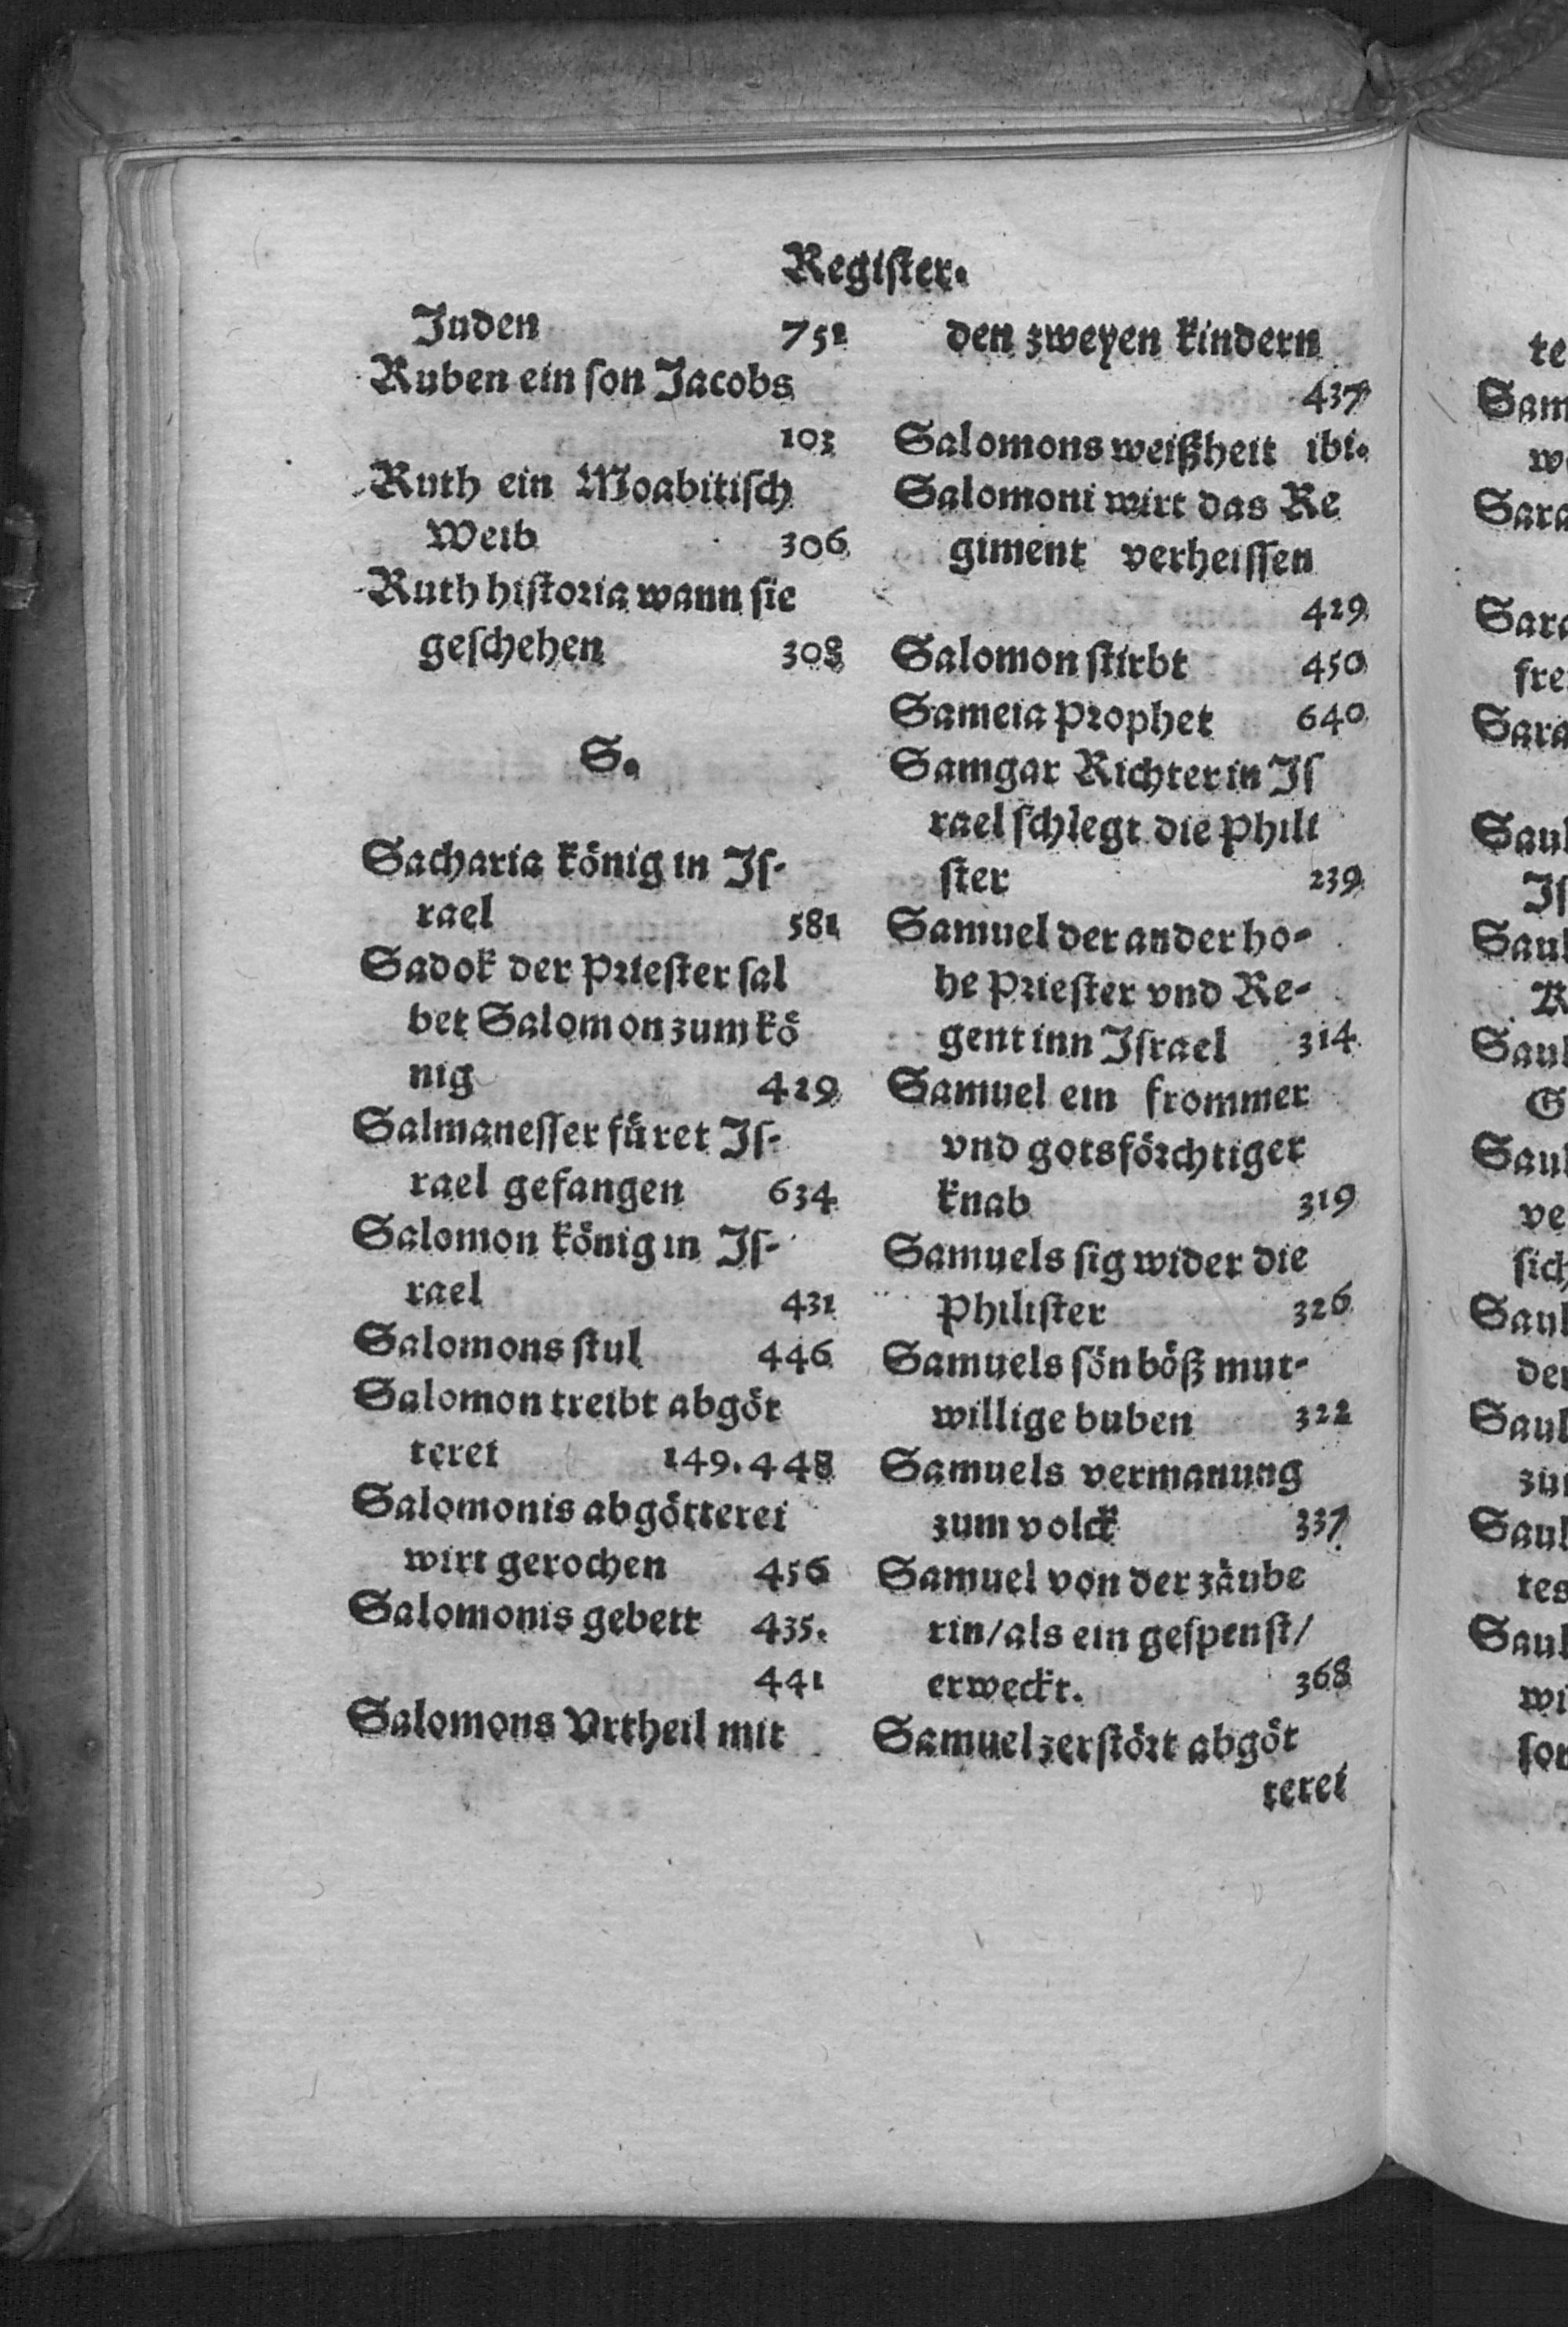 Regiſter.
Juden 751
Ruben ein ſon Jacobs
103
Ruth ein Moabitiſch
Weib 306
Ruth hiſtoria wann ſie
geſchehen 308
S.
Sacharia könig in Iſ-
rael 581
Sadok der Prieſter ſal
bet Salomon zum kö
nig 429
Salmaneſſer füret Iſ-
rael gefangen 634
Salomon könig in Iſ-
rael 431
Salomons ſtul 446
Salomon treibt abgöt
terei 149. 448
Salomonis abgötterei
wirt gerochen 456
Salomonis gebett 435.
441
Salomons Vrtheil mit
den zweyen kindern
437
Salomons weißheit ibi.
Salomoni wirt das Re
giment verheiſſen
429
Salomon ſtirbt 450
Sameia Prophet 640
Samgar Richter in Iſ
rael ſchlegt die Phili
ſter 239
Samuel der ander ho-
he Prieſter vnd Re-
gent inn Iſrael 314
Samuel ein frommer
vnd gotsförchtiger
knab 319
Samuels ſig wider die
Philiſter 326
Samuels ſön böß mut-
willige buben 322
Samuels vermanung
zum volck 337
Samuel von der zäube
rin/als ein geſpenſt/
erweckt. 368
Samuel zerſtört abgöt
terei
te
Sam
Sara
Sara
fre
Sara
Saul
Iſ
Saul
Saul
G
Saul
ve
ſich
Saul
der
Saul
Saul
tes
Saul
wi